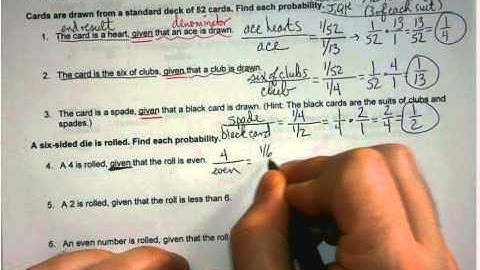 Cards are drawn from a standard deck of 52 cards. Find each probability. JQK (13 of each suit)
end result denominator
1. The card is a heart, given that an ace is drawn. ace hearts / ace = 1/52 / 1/13 → 1/52 · 13/1 = 13/52 = 1/4
2. The card is the six of clubs, given that a club is drawn. six of clubs / club = 1/52 / 1/4 = 1/52 · 4/1 = 1/13
3. The card is a spade, given that a black card is drawn. (Hint: The black cards are the suits of clubs and
spades.) spade / black card = 1/4 / 1/2 = 1/4 · 2/1 = 2/4 = 1/2
A six-sided die is rolled. Find each probability.
4. A 4 is rolled, given that the roll is even. 4 / even = 1/6
5. A 2 is rolled, given that the roll is less than 6.
6. An even number is rolled, given that the roll